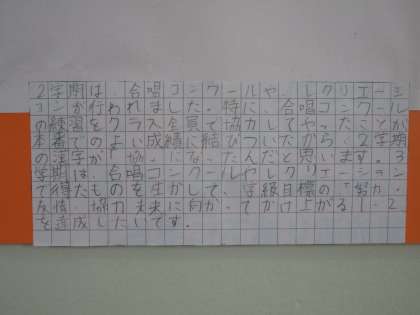 2学期は、合唱コンクールや、レクリエーシ
ョンが行われました。特に、合唱コンクール
の練習をクラス全員で協力してやったことが
本番でのよい成績に結びついたから、2学期
の漢字が「協」になったんだと思います。3
学期は、合唱コンクールやレクリエーション
で得たものを生かして、学級目標の「努力・
友情・協力 未来に向かってかけ上がる1-2」
を達成したいです。